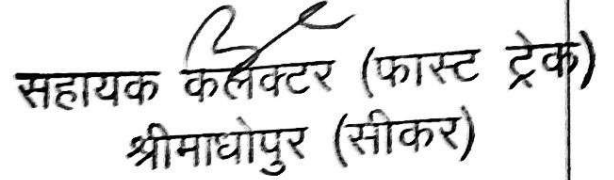 सहायक कलेक्टर (फास्ट ट्रेक)
श्रीमाधोपुर (सीकर)